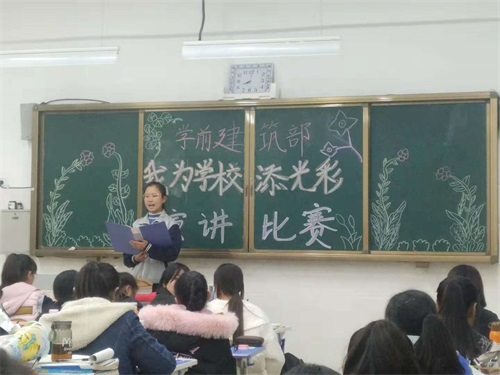 学前建筑部
我为学校添光彩
演讲比赛